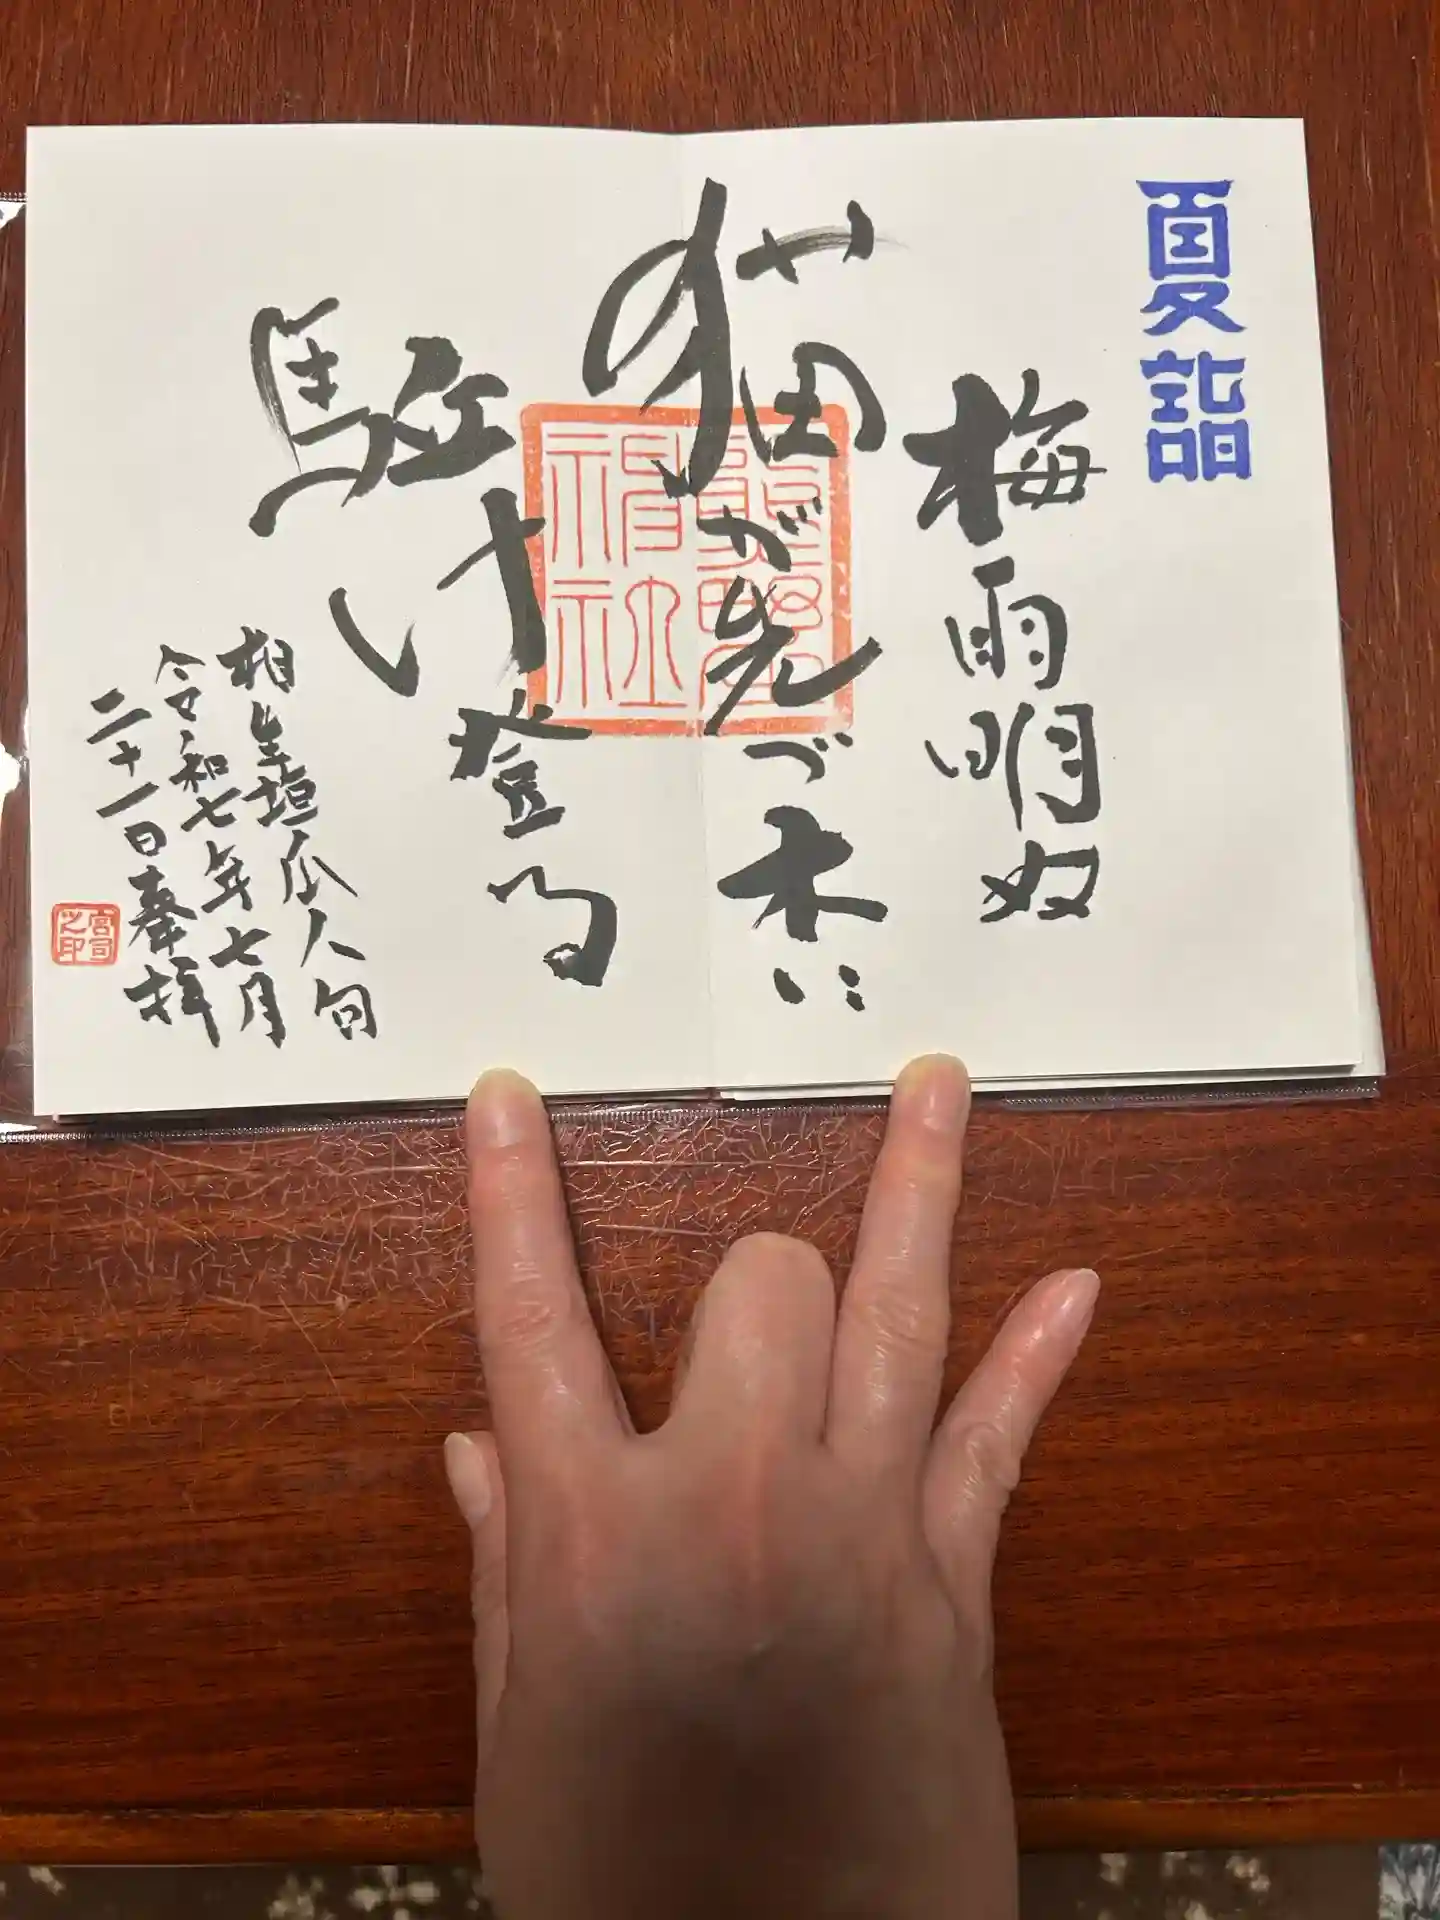 夏詣
梅雨明ぬ
猫が先づ木に
駈け登る
相生垣瓜人句
令和七年七月
二十一日奉拝
熊野
神社
宮司
之印